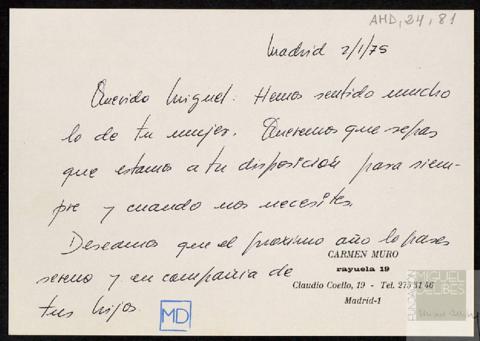 AMD, 24, 81
Madrid 2/1/75
Querido Miguel: Hemos sentido mucho
lo de tu mujer. Queremos que sepas
que estamos a tu disposición para siem-
pre y cuando nos necesites.
Deseamos que el proximo año lo pases
sereno y en compañia de
tus hijos.
CARMEN MURO
rayuela 19
Claudio Coello, 19 - Tel. 275 31 46
Madrid-1
MD
FUNDACIÓN
MIGUEL
DELIBES